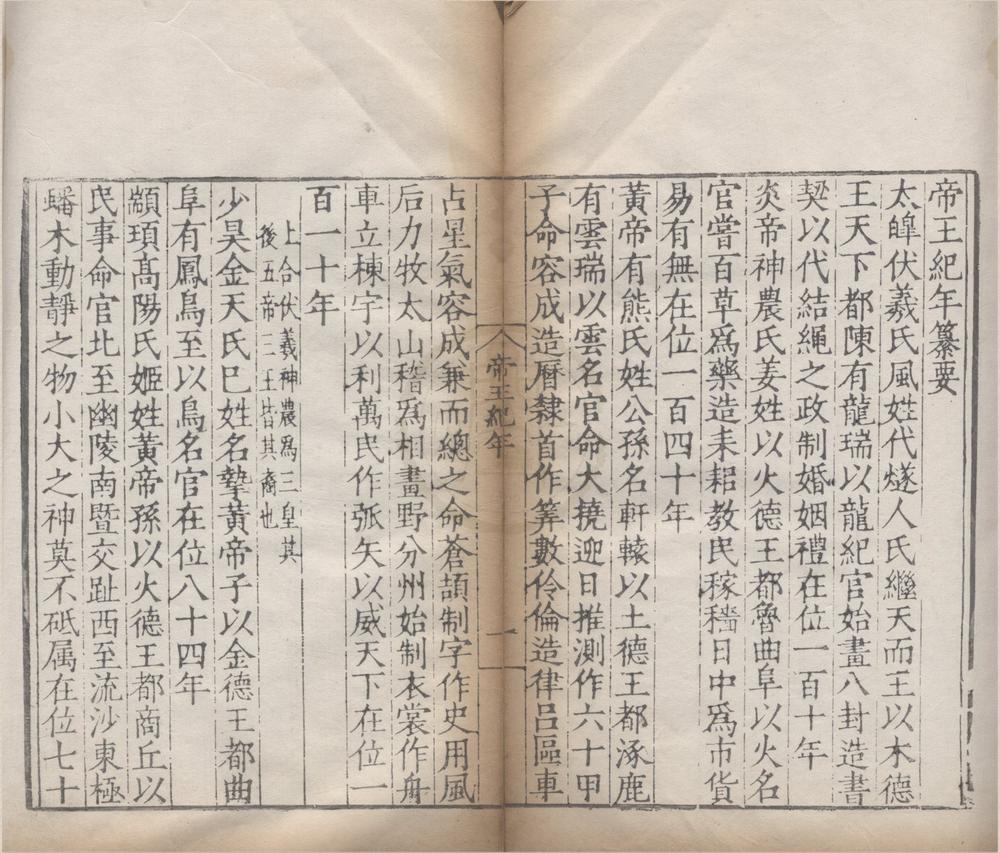 帝王紀年纂要
太皥伏羲氏風姓代燧人氏繼天而王以木德
王天下都陳有龍瑞以龍紀官始畫八封造書
契以代結繩之政制婚姻禮在位一百十年
炎帝神農氏姜姓以火德王都魯曲阜以火名
官嘗百草爲藥造耒耜教民稼穡日中爲市貨
易有無在位一百四十年
黃帝有熊氏姓公孫名軒轅以土德王都涿鹿
有雲瑞以雲名官命大撓迎日推測作六十甲
子命容成造曆隸首作筭數伶倫造律吕區車
帝王紀年
一
占星氣容成兼而緫之命蒼頡制字作史用風
后力牧太山稽爲相畫野分州始制衣裳作舟
車立棟宇以利萬民作弧矢以威天下在位一
百一十年
上合伏羲神農爲三皇其
後五帝三王皆其裔也
少昊金天氏巳姓名摯黃帝子以金德王都曲
阜有鳳鳥至以鳥名官在位八十四年
顓頊髙陽氏姬姓黃帝孫以火德王都商丘以
民事命官北至幽陵南暨交趾西至流沙東極
蟠木動靜之物小大之神莫不砥属在位七十